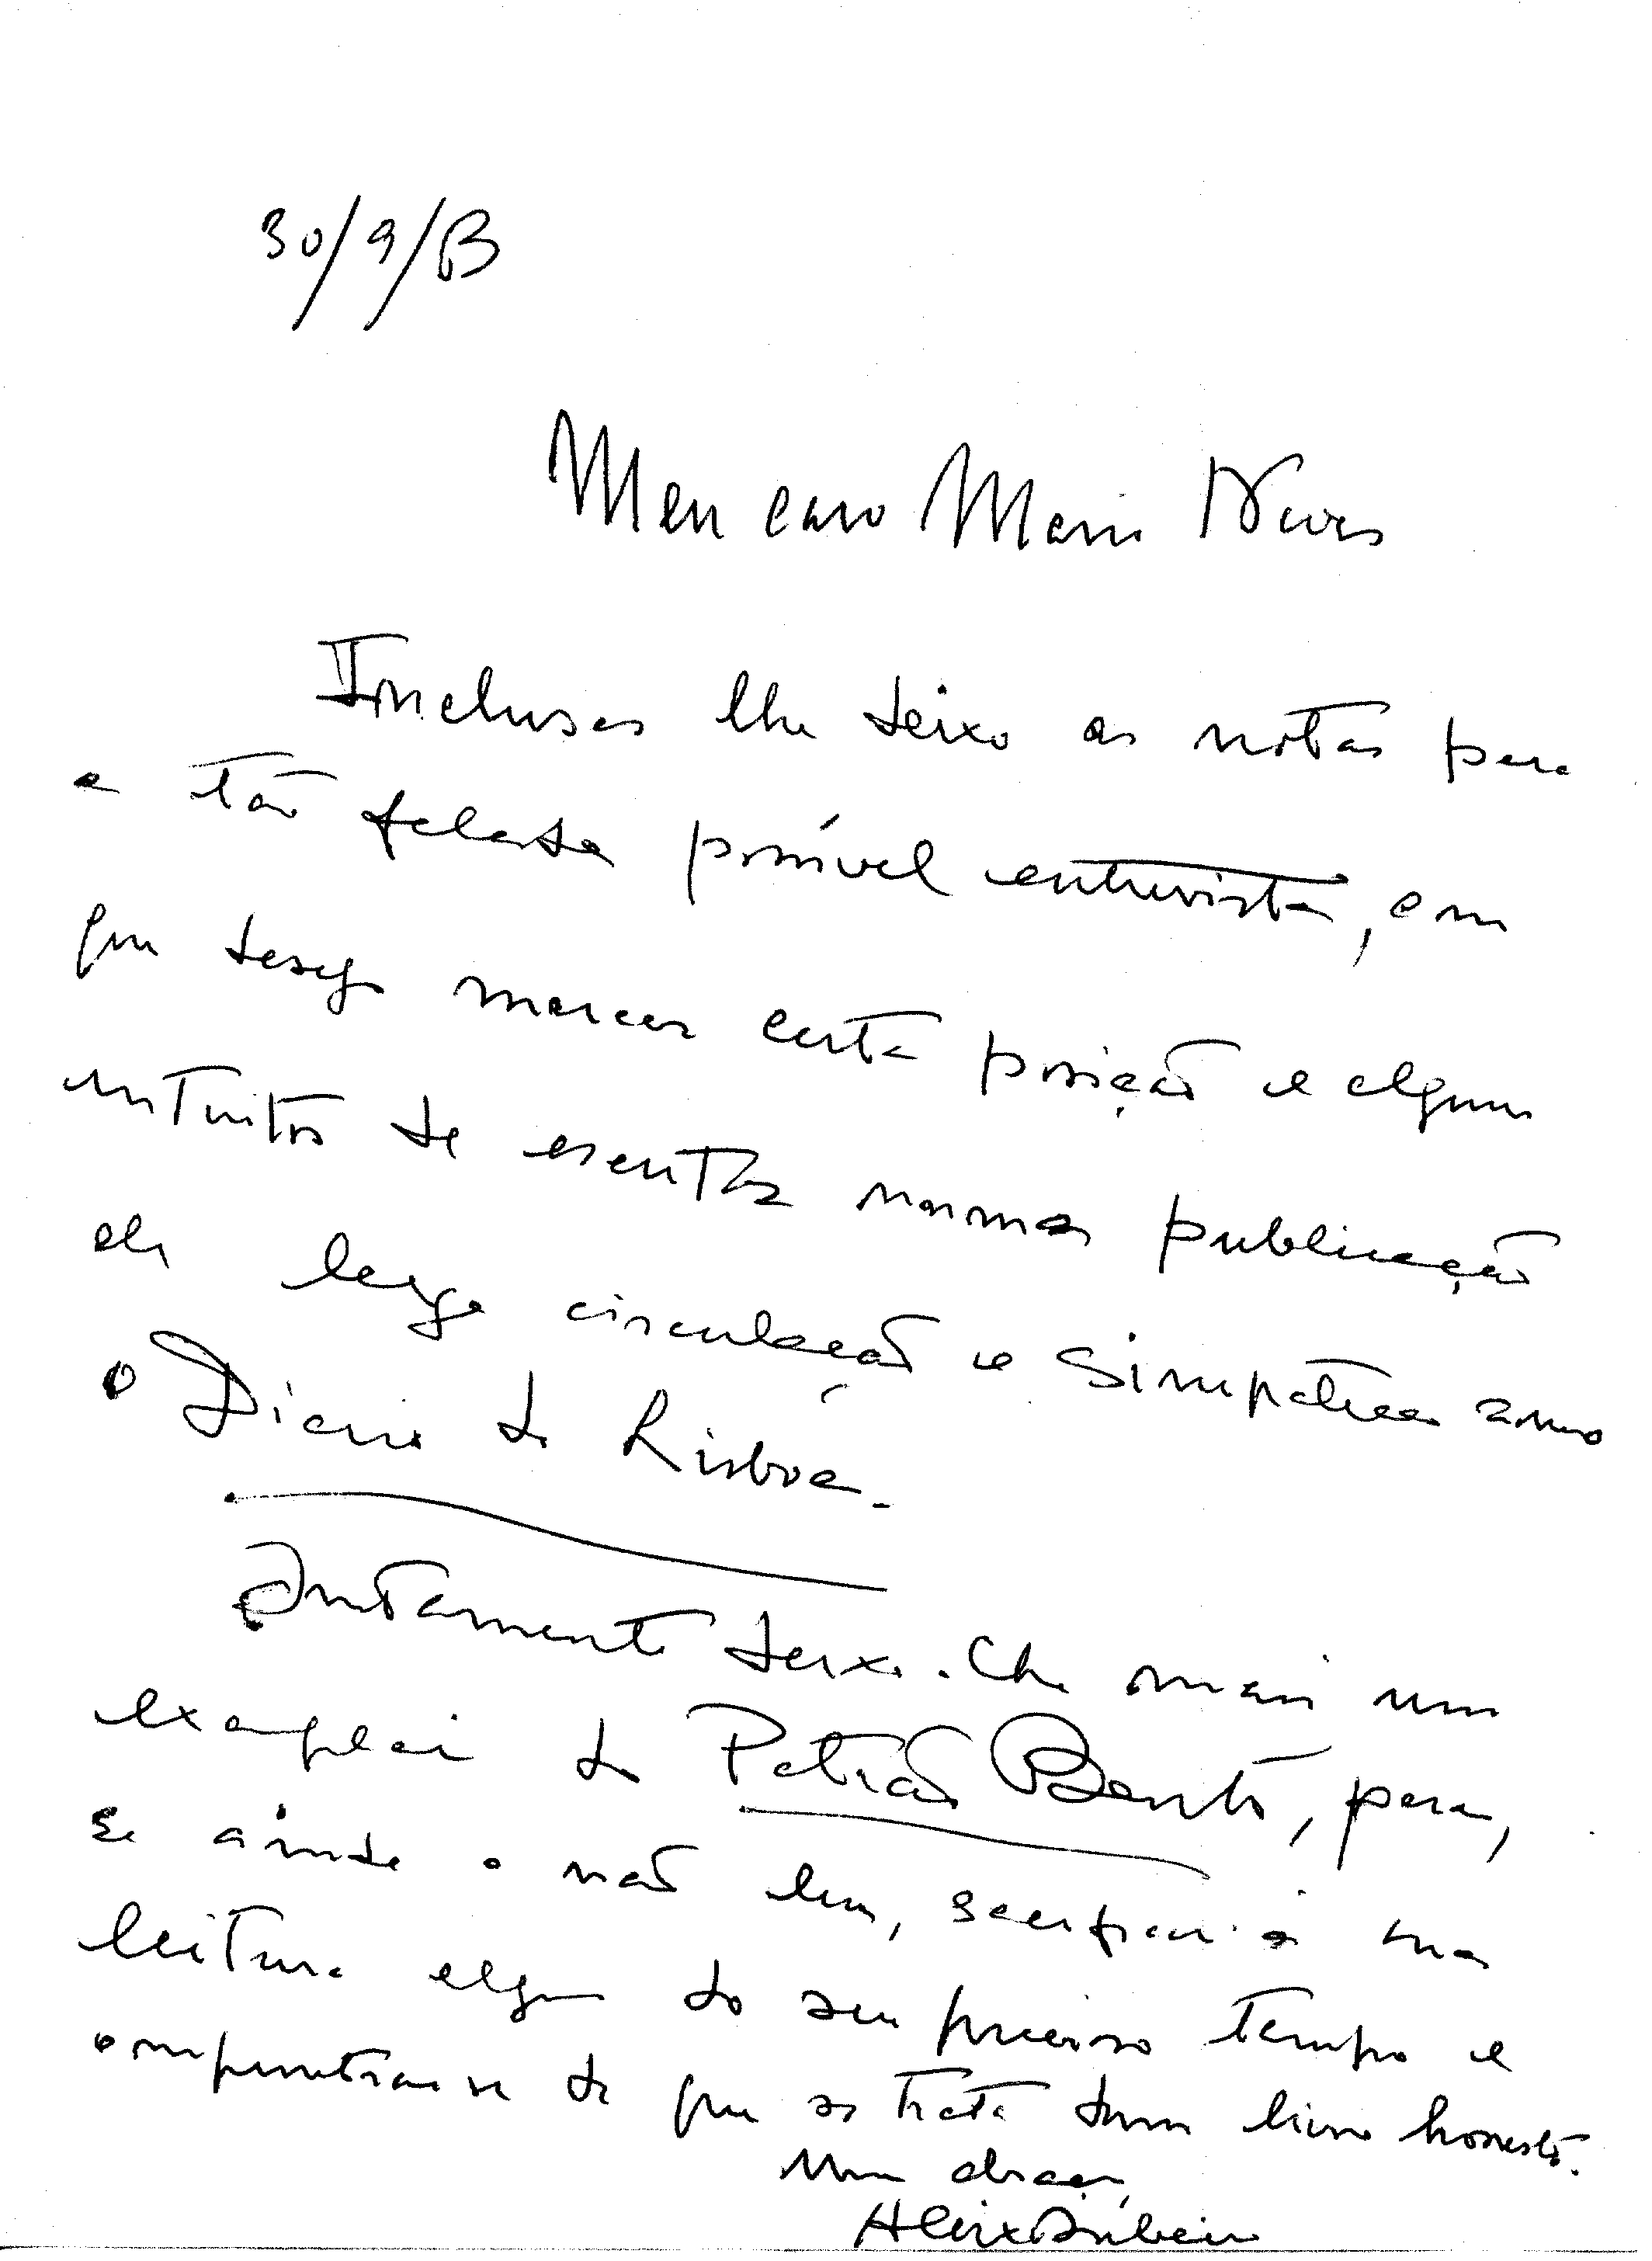 30/9/73
Meu caro Mário Neves
Inclusas lhe deixo as notas para
a tão falada possível entrevista, em
que desejo marcar certa posição e alguns
intuitos de escritor numa publicação
de larga circulação e simpatia como
o Diário de Lisboa.
Juntamente deixo-lhe mais um
exemplar do Patrão Bento, para,
se ainda o não leu, sacrificar à sua
leitura algum do seu precioso tempo e
compenetrar-se de que se trata dum livro honesto.
Um abraço,
Aleixo Ribeiro